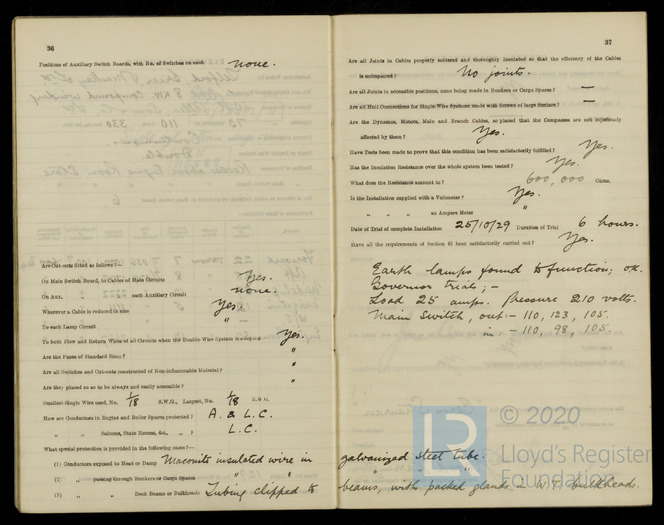 36
Positions of Auxiliary Switch Boards, with No. of Switches on each None.
Are Cut-outs fitted as follows?—
On Main Switch Board, to Cables of Main Circuits Yes.
On Aux. " " each Auxiliary Circuit None.
Wherever a Cable is reduced in size Yes.
To each Lamp Circuit "
To both Flow and Return Wires of all Circuits when the Double-Wire System is adopted Yes.
Are the Fuses of Standard Sizes? "
Are all Switches and Cut-outs constructed of Non-inflammable Material? "
Are they placed so as to be always and easily accessible? "
Smallest Single Wire used, No. 1/18 S.W.G., Largest, No. 1/18 S.W.G.
How are Conductors in Engine and Boiler Spaces protected? A. & L.C.
" " Saloons, State Rooms, &c., " ? L.C.
What special protection is provided in the following cases?—
(1) Conductors exposed to Heat or Damp Maconite insulated wire in
(2) " passing through Bunkers or Cargo Spaces
(3) " " Deck Beams or Bulkheads Tubing clipped to
37
Are all Joints in Cables properly soldered and thoroughly insulated so that the efficiency of the Cables
is unimpaired? No joints.
Are all Joints in accessible positions, none being made in Bunkers or Cargo Spaces? —
Are all Hull Connections for Single-Wire Systems made with Screws of large Surface? —
Are the Dynamos, Motors, Main and Branch Cables, so placed that the Compasses are not injuriously
affected by them? Yes.
Have Tests been made to prove that this condition has been satisfactorily fulfilled? Yes.
Has the Insulation Resistance over the whole system been tested? Yes.
What does the Resistance amount to? 600,000 Ohms.
Is the Installation supplied with a Voltmeter? Yes.
" " " an Ampere Meter "
Date of Trial of complete Installation 25/10/29 Duration of Trial 6 hours.
Have all the requirements of Section 42 been satisfactorily carried out? Yes.
Earth lamps found to function; OK.
Governor trials;-
Load 25 amps. Pressure 210 volts.
Main switch, out:- 110, 123, 105.
in,- 110, 98, 105.
galvanized steel tube.
" " "
beams, with packed glands in W.T. bulkheads.
LR
© 2020
Lloyd's Register
Foundation